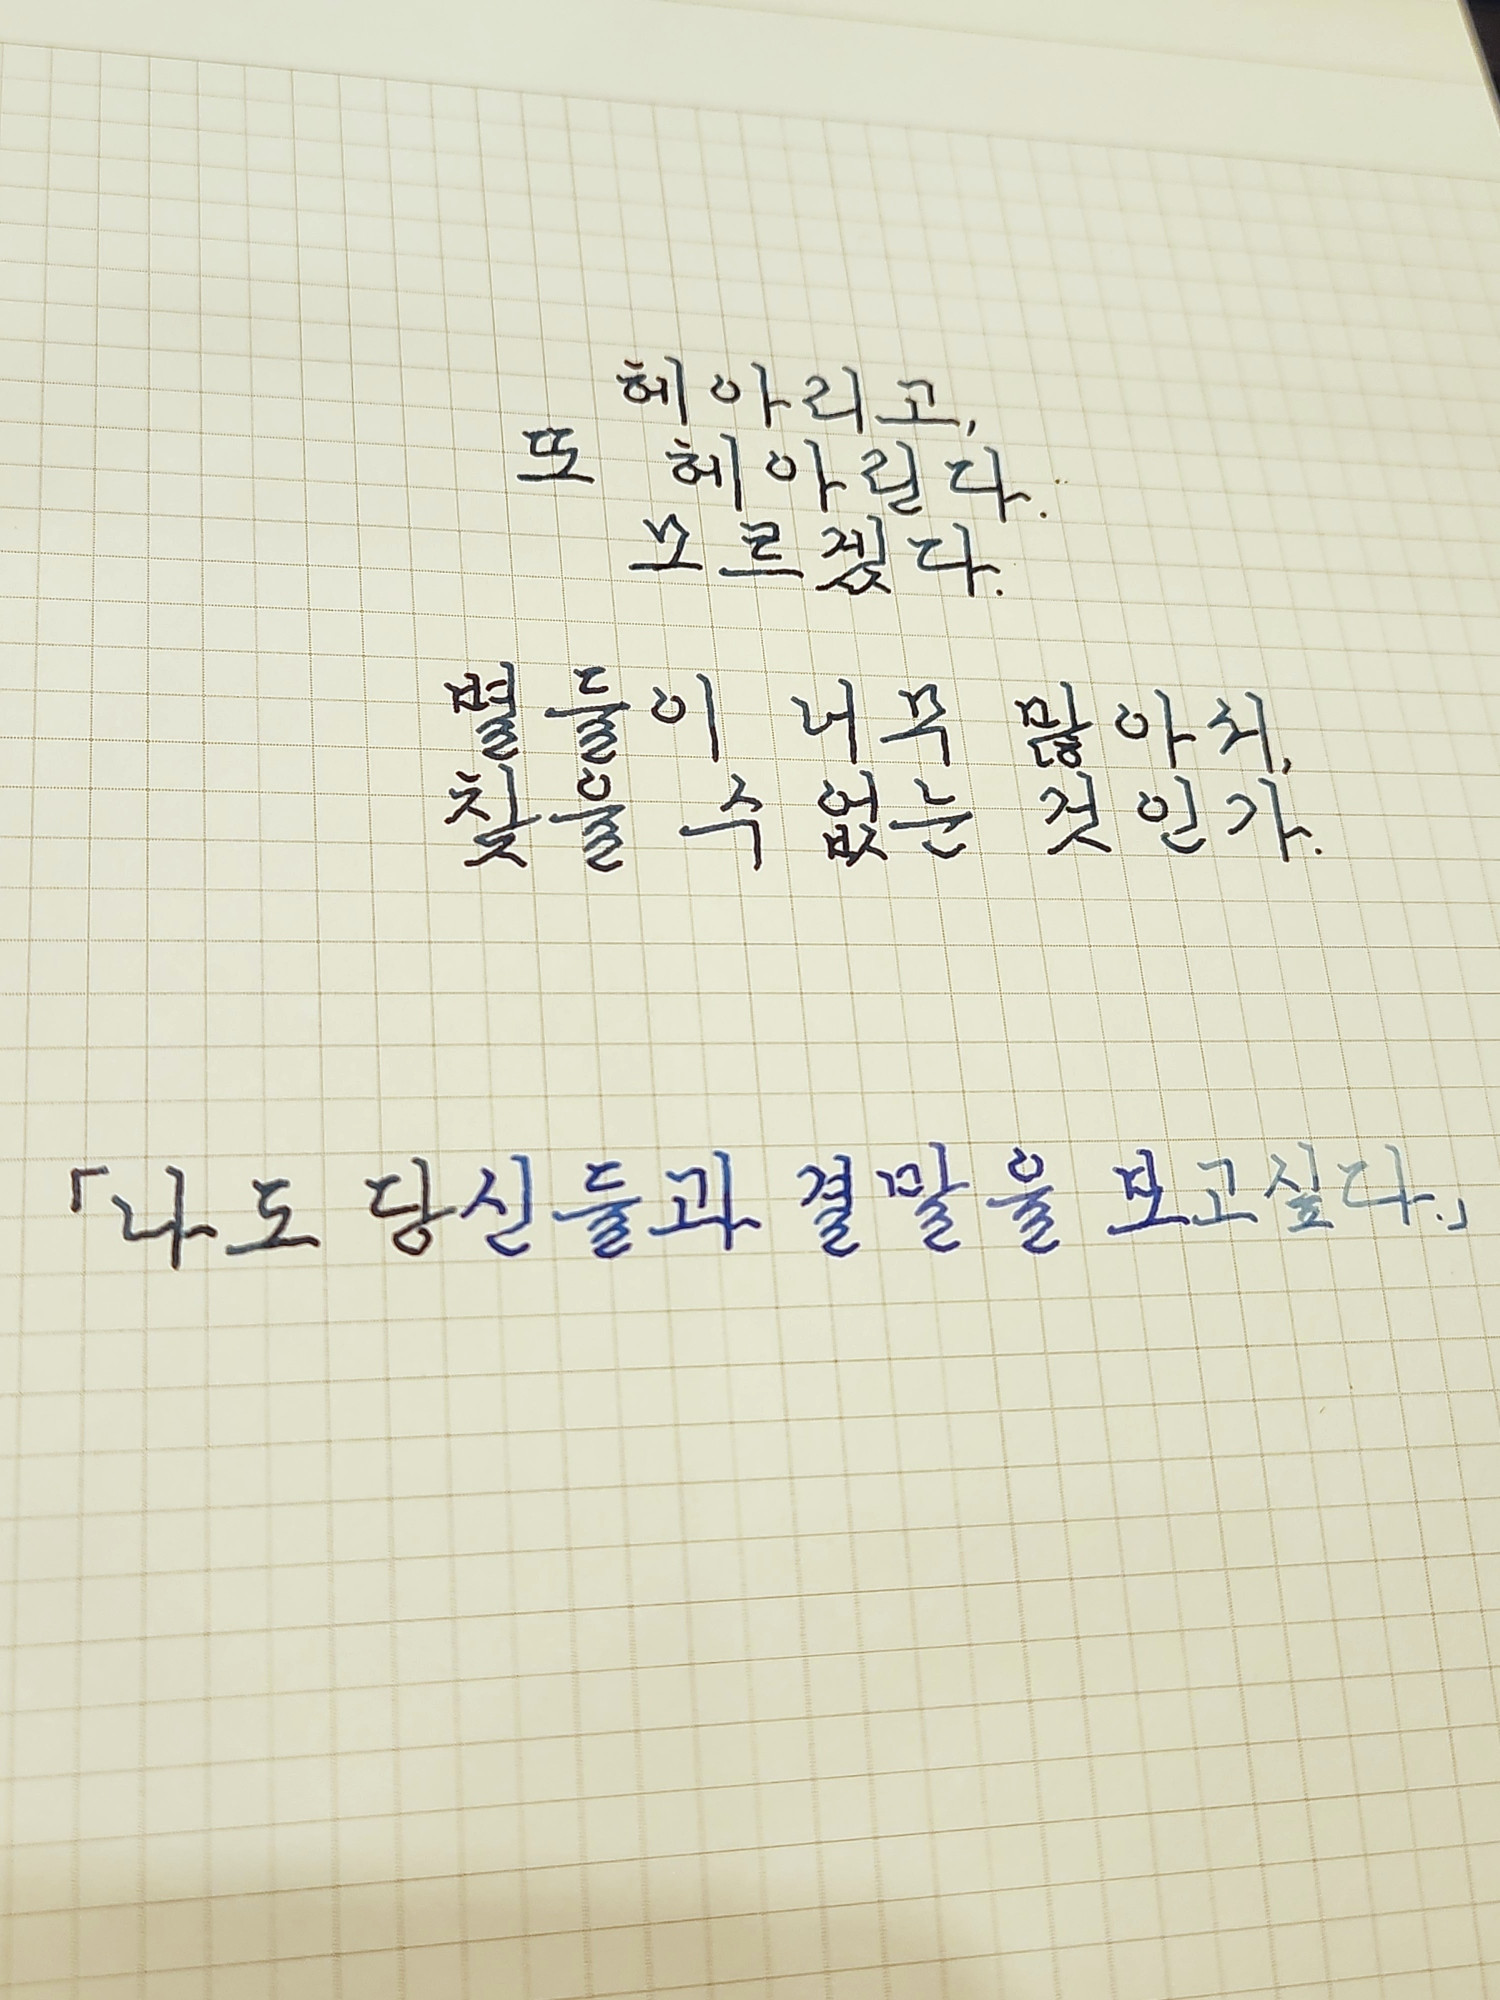 헤아리고,
또 헤아린다.
모르겠다.
별들이 너무 많아서,
찾을 수 없는 것인가.
「나도 당신들과 결말을 보고싶다.」